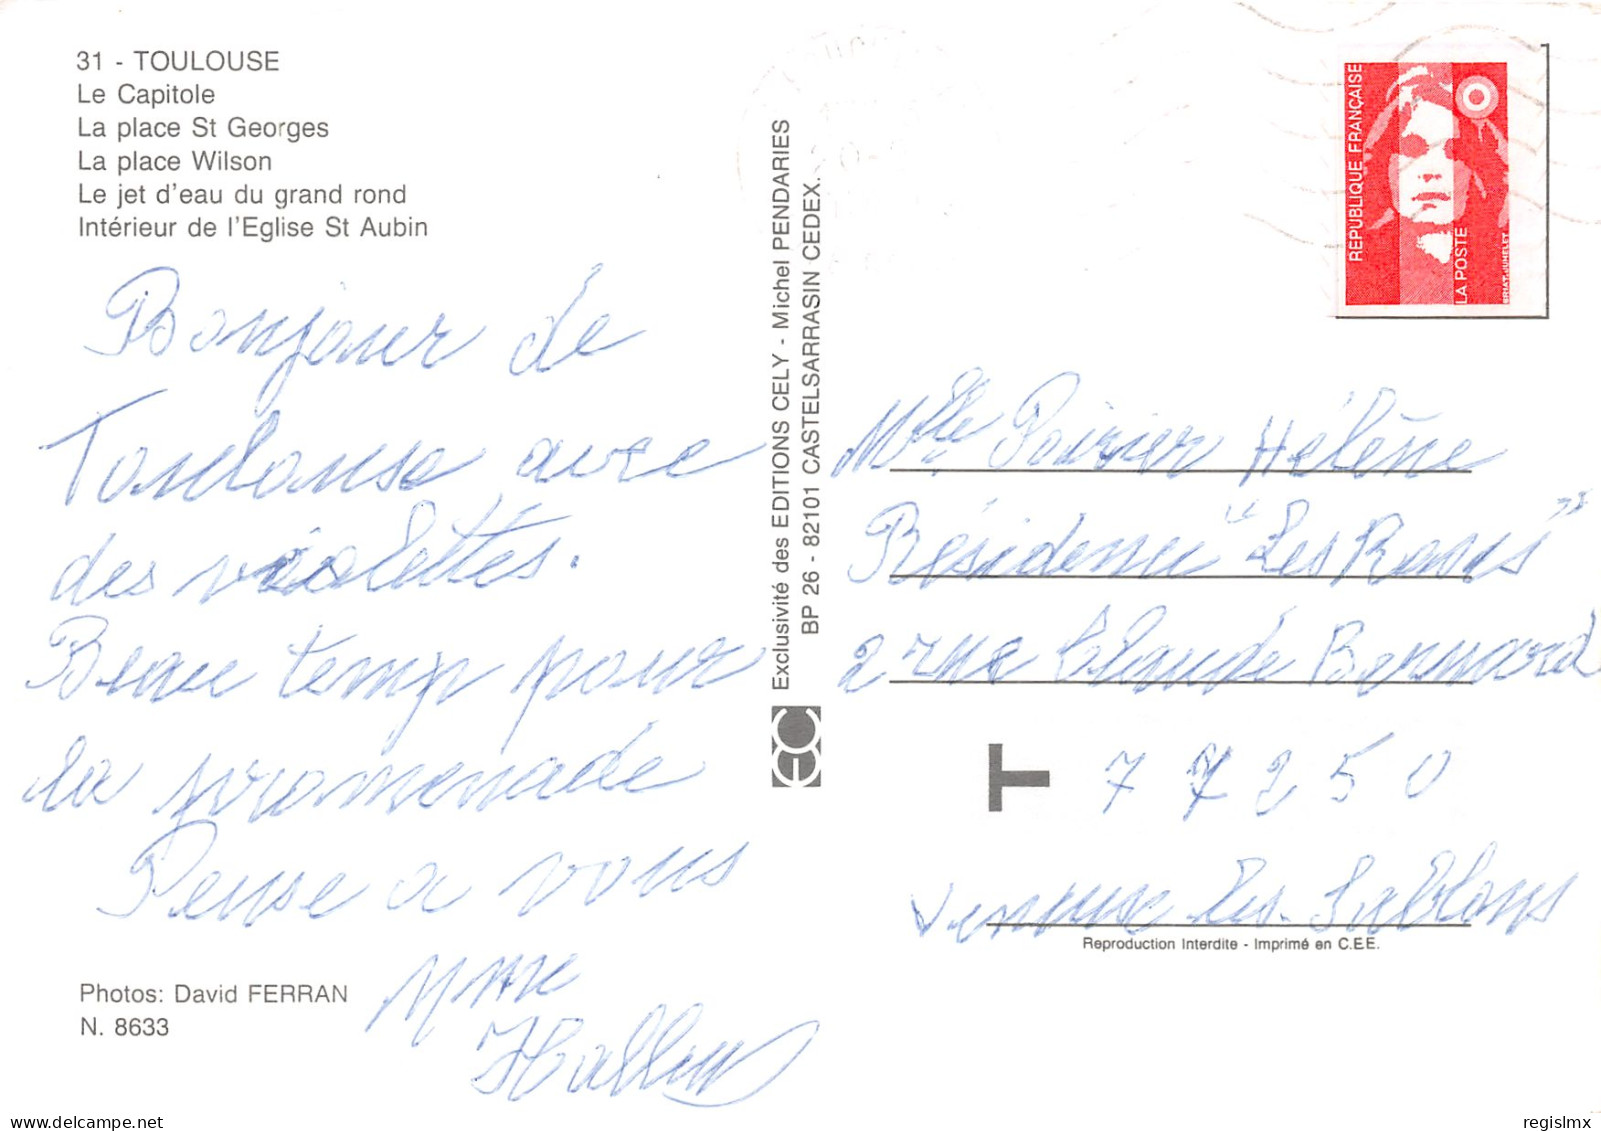 31 - TOULOUSE
Le Capitole
La place St Georges
La place Wilson
Le jet d'eau du grand rond
Intérieur de l'Eglise St Aubin
Bonjour de
Toulouse avec
des violettes.
Beau temp pour
la promenade
Pense a vous
Mme
Photos: David FERRAN
N. 8633
Exclusivité des EDITIONS CELY - Michel PENDARIES
BP 26 - 82101 CASTELSARRASIN CEDEX.
REPUBLIQUE FRANÇAISE
LA POSTE
BRIAT-JUMELET
Mlle Poirier Hélène
Résidence "Les
2 rue Claude Bernard
T 77250
les Sablons
Reproduction Interdite - Imprimé en C.E.E.
delcampe.net
regislmx